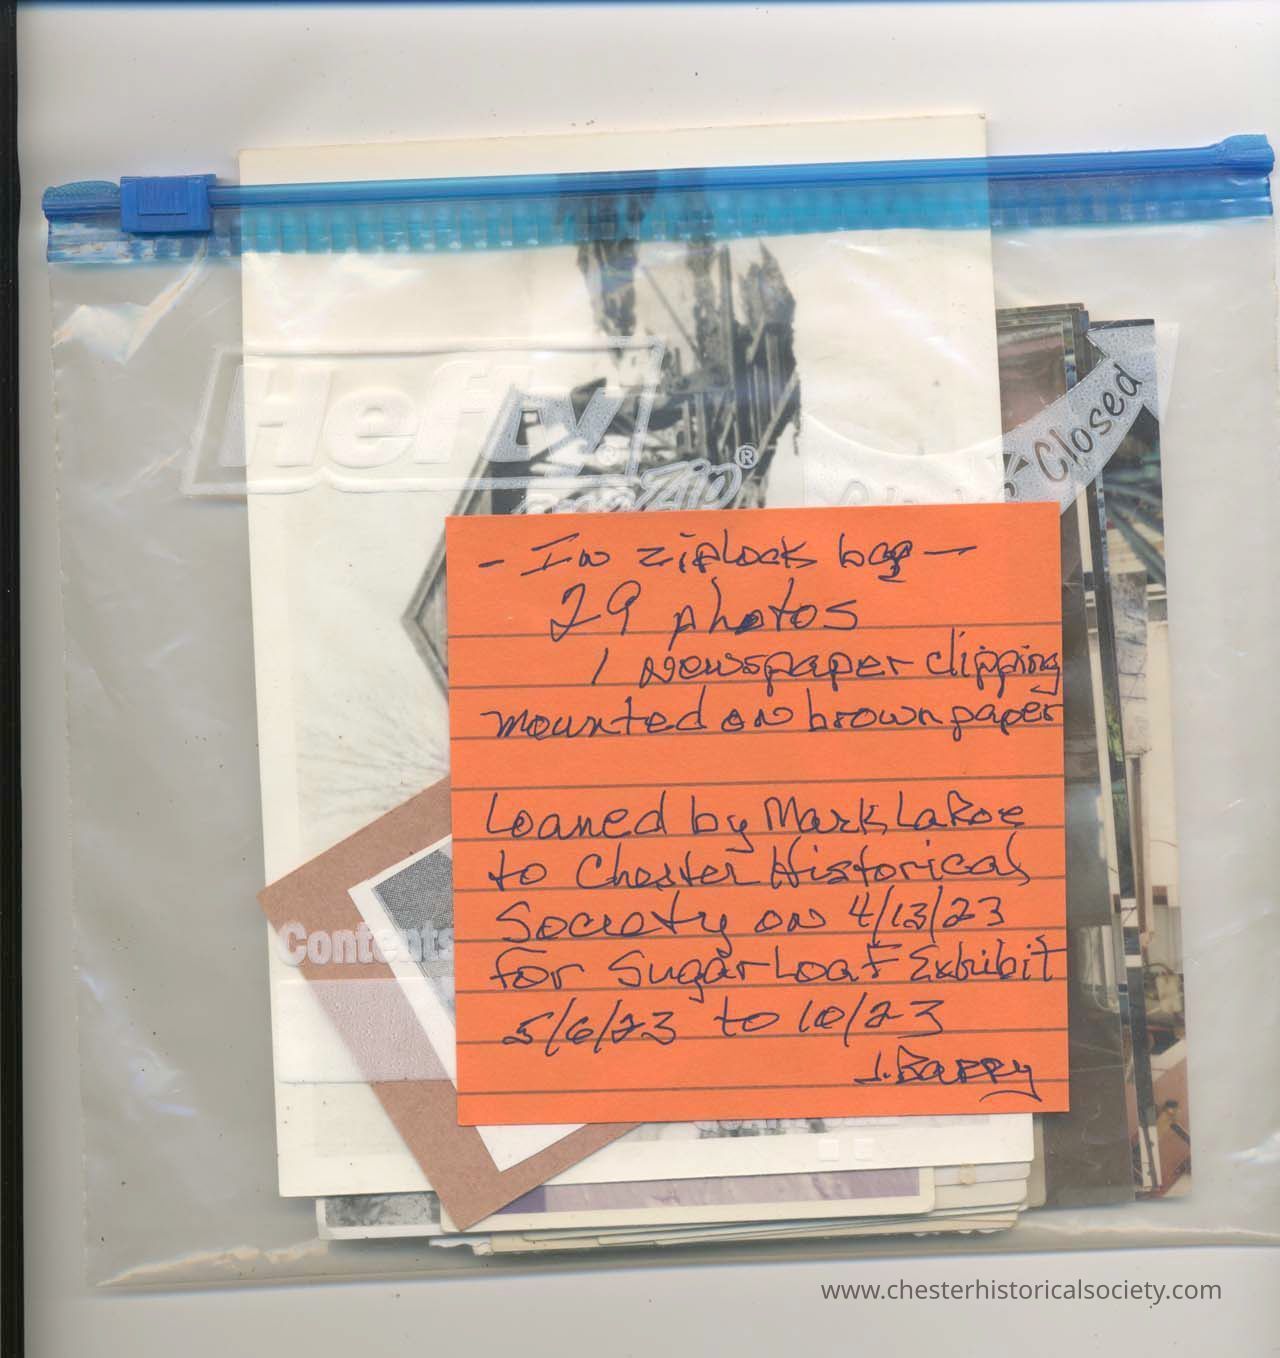 Hefty®
OneZip®
Closed
- In ziplock bag -
29 photos
1 Newspaper clipping
mounted on brown paper
Loaned by Mark LaRoe
to Chester Historical
Society on 4/13/23
for Sugar Loaf Exhibit
5/6/23 to 10/23
J. Barry
Contents
www.chesterhistoricalsociety.com